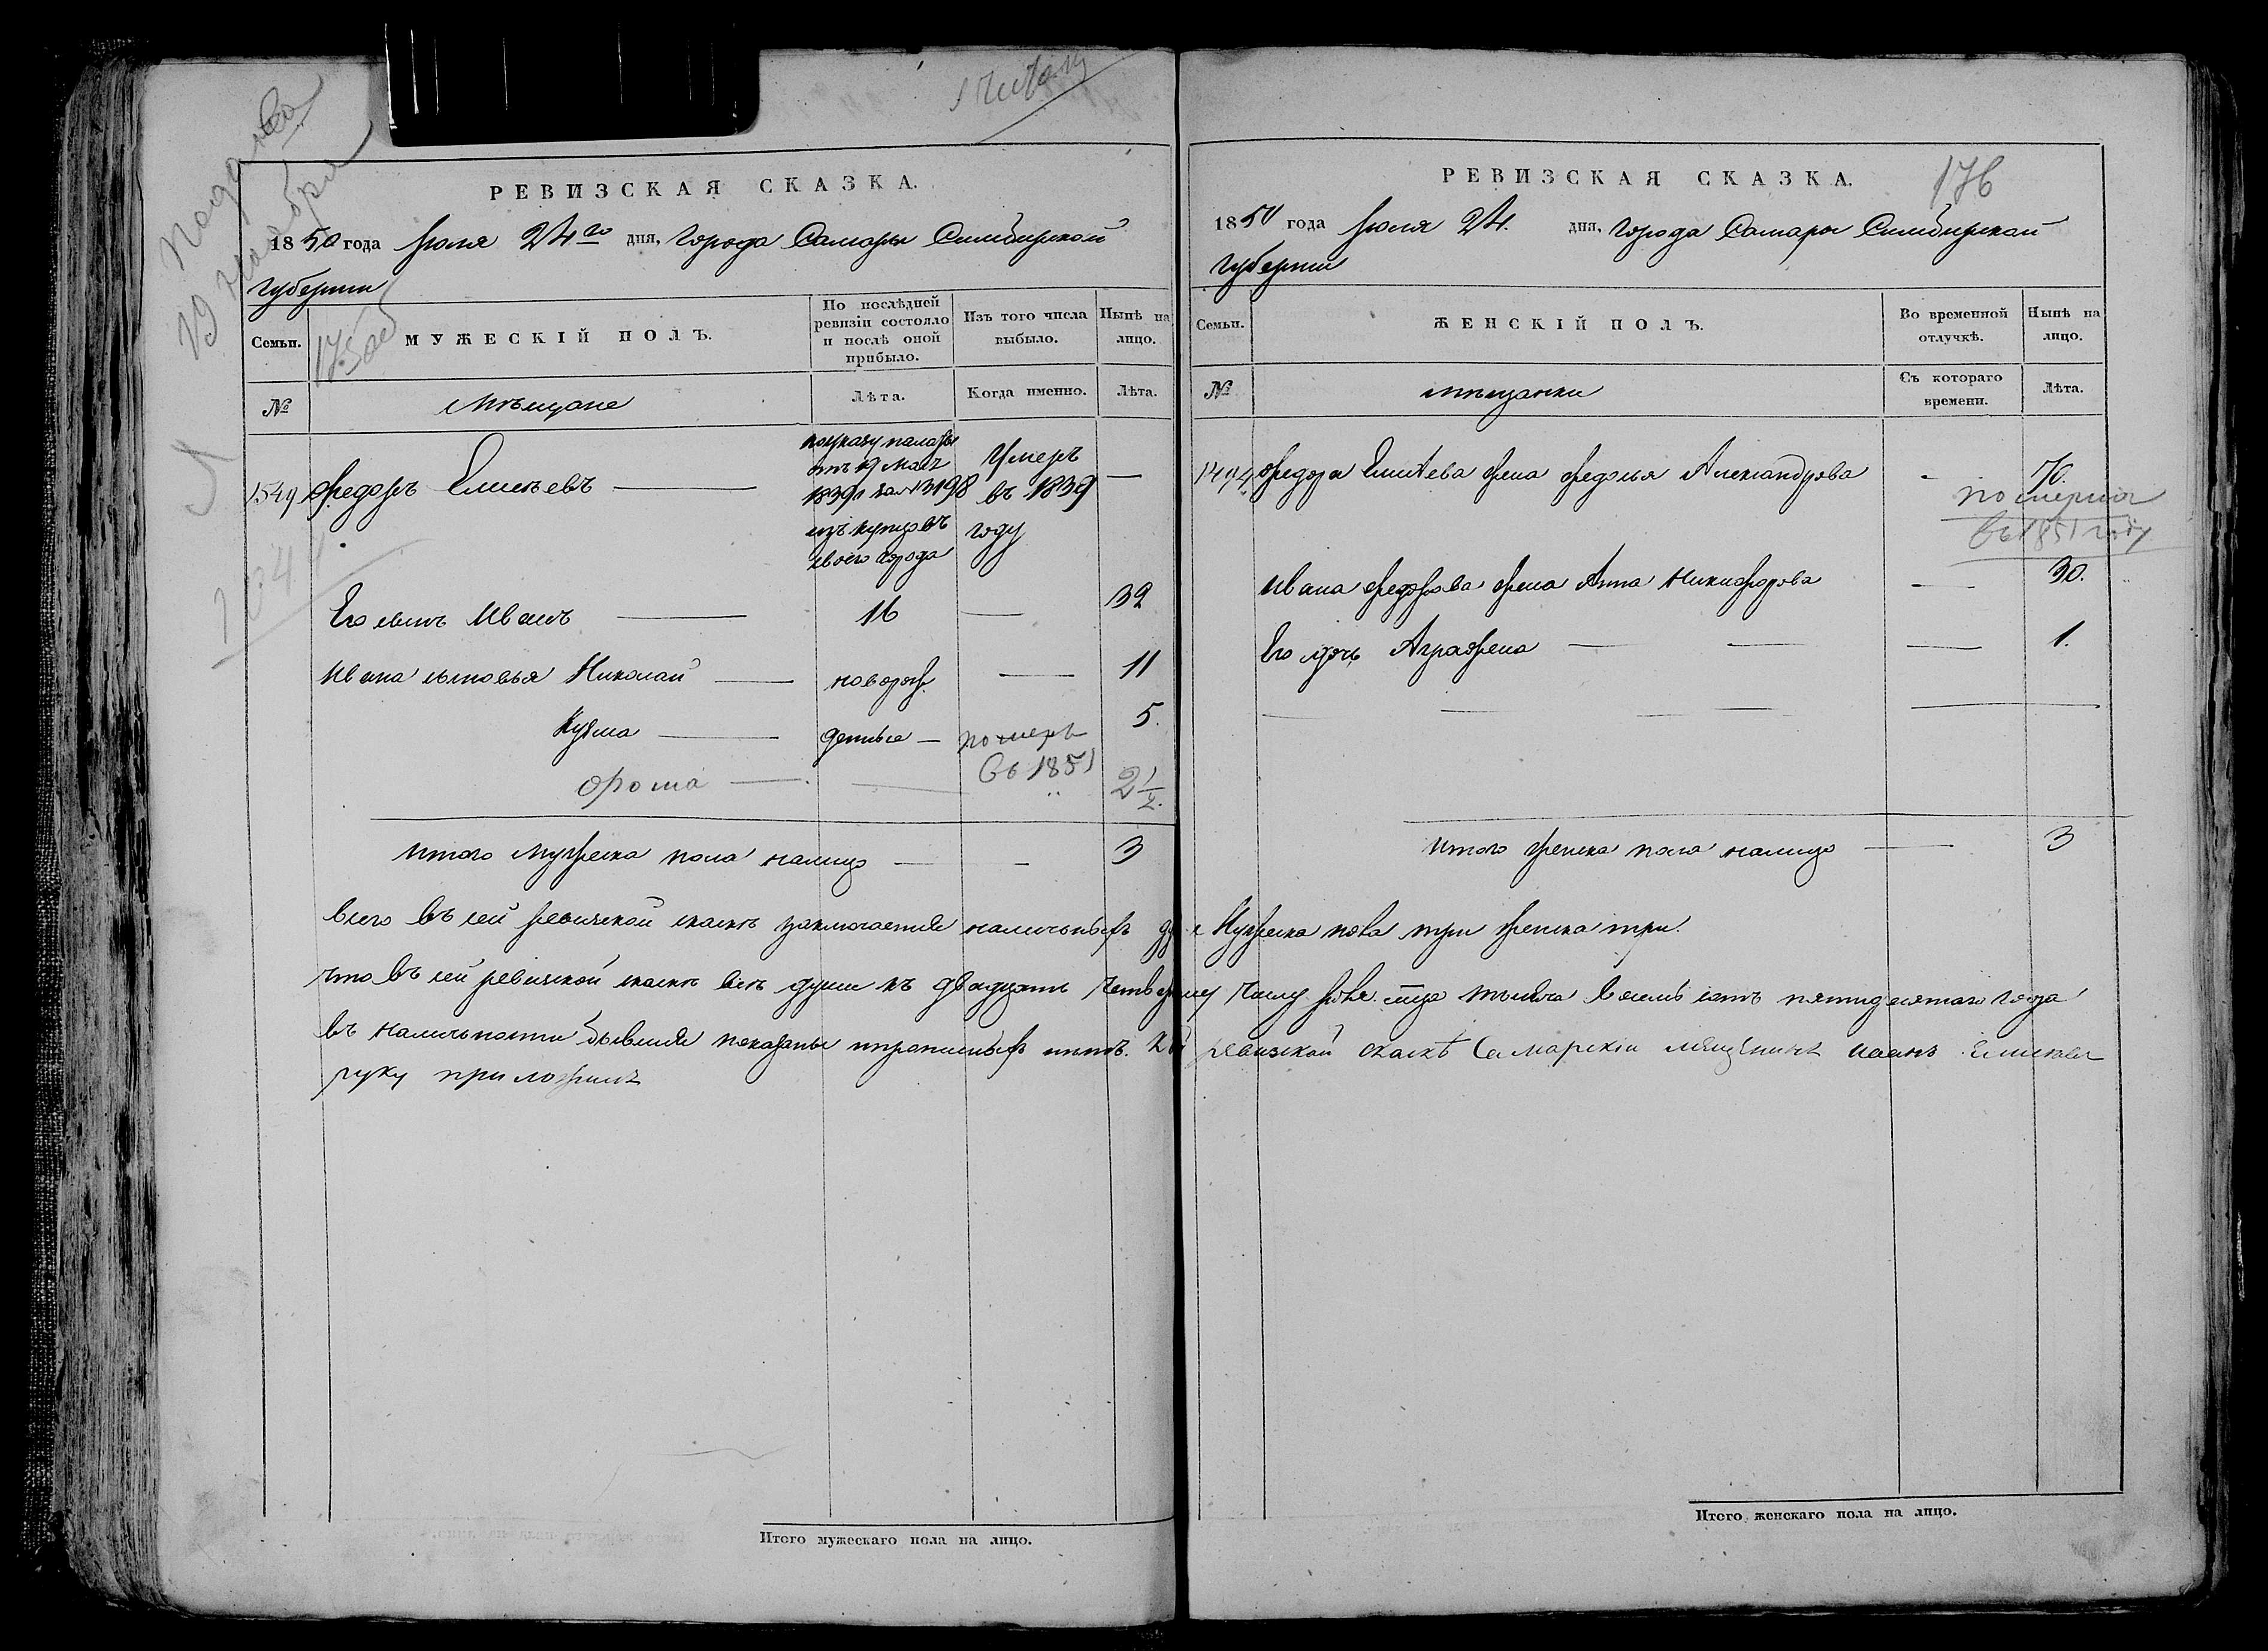 Подана
19 ноября
Читалъ
РЕВИЗСКАЯ СКАЗКА.
1850 года Июля 24го дня, Города Самары Симбирской
Губернии
Семьи.
МУЖЕСКІЙ ПОЛЪ.
По послѣдней ревизіи состояло и послѣ оной прибыло.
Изъ того числа выбыло.
Нынѣ на лицо.
№
Мѣщане
Лѣта.
Когда именно.
Лѣта.
1549 Федоръ Елисѣевъ —
по указу палаты
отъ 19 Мая
1839 г за № 3198
изъ купцовъ
своего города
Умеръ
въ 1839
году
—
Его сынъ Иванъ — 16 — 32
Ивана сыновья Николай — новорож. — 11
Кузма — 5.
померъ
въ 1851
Фома — — 2 1/2.
Итого Мужеска пола налицо — — 3
РЕВИЗСКАЯ СКАЗКА.
176
1850 года Июля 24. дня, Города Самары Симбирской
Губернии
Семьи.
ЖЕНСКІЙ ПОЛЪ.
Во временной отлучкѣ.
Нынѣ на лицо.
№
мещанки
Съ котораго времени.
Лѣта.
1494 Федора Елисѣева жена Федосья Александрова - 70.
померла
въ 1851 году
Ивана Федорова жена Анна Никифорова — 30.
Его дочь Аграфена — — — 1.
Итого женска пола налицо — 3
Всего въ сей ревизской сказкѣ заключается наличныхъ душъ Мужеска пола три женска три.
что въ сей ревизской сказкѣ всѣ души къ двадцать четвертому числу Июля мца тысяча восемь сотъ пятидесятаго года
въ наличности бывшия показаны и прописныхъ нѣтъ. Къ сей ревизской скаскѣ Самарскіи мещенинъ иванъ Елисеевъ
руку приложилъ
Итого мужескаго пола на лицо.
Итого женскаго пола на лицо.